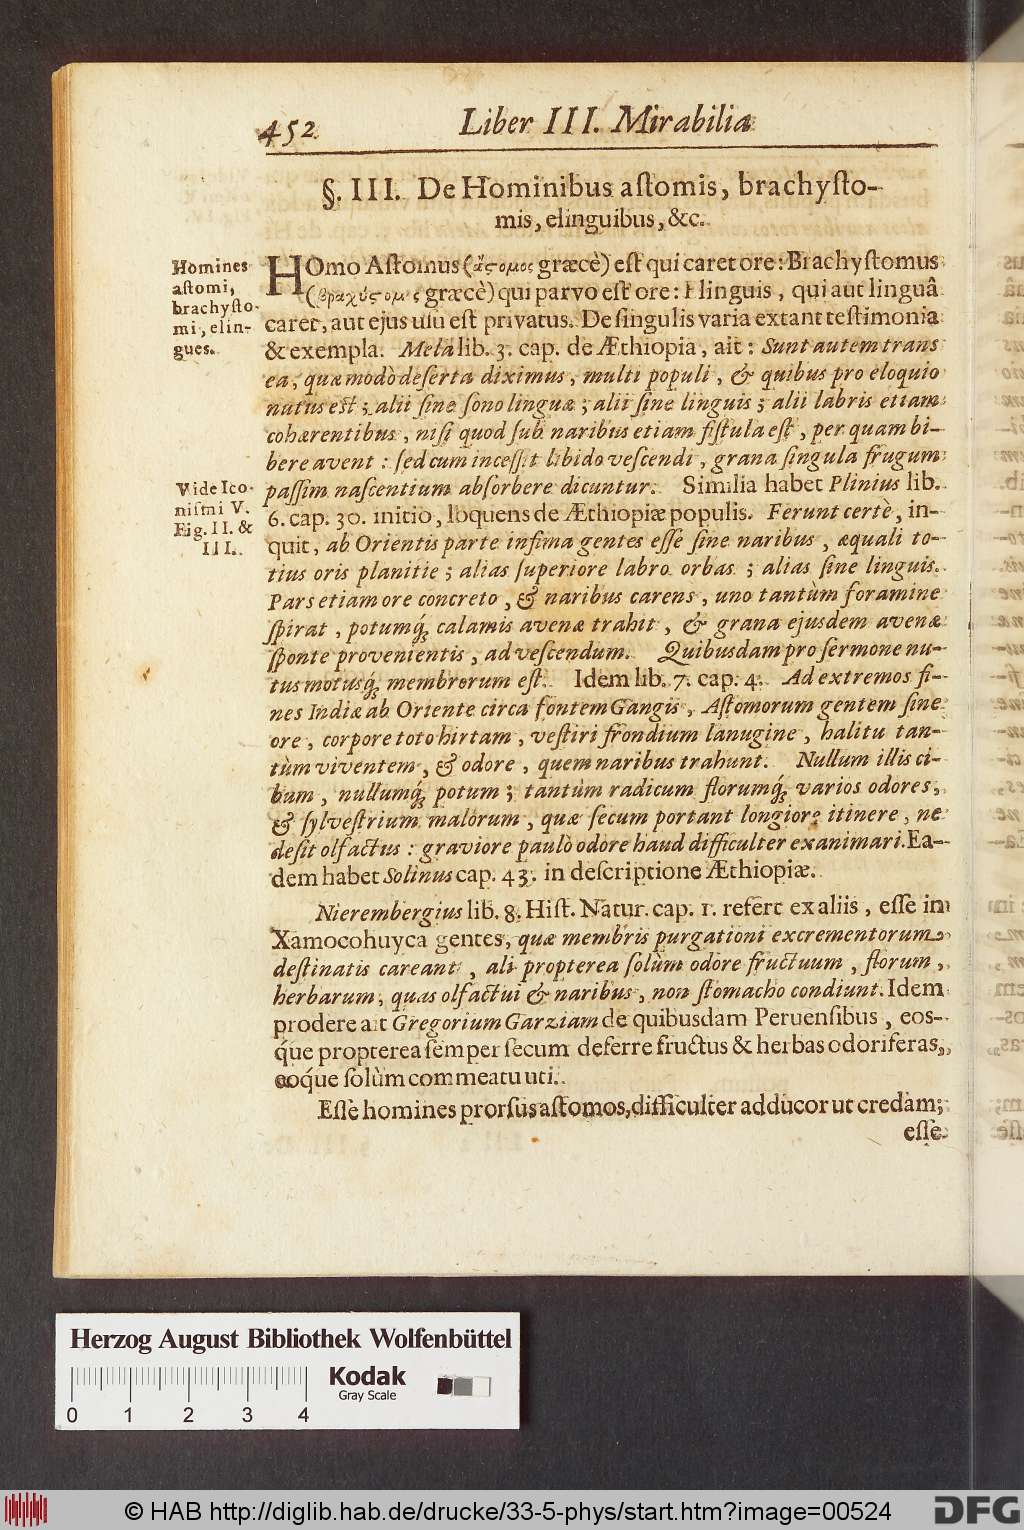 452
Liber III. Mirabilia
§. III. De Hominibus aſtomis, brachyſto-
mis, elinguibus, &c.
Homines
aſtomi,
brachyſto-
mi, elin-
gues.
HOmo Aſtomus (ἄςομος græcè) eſt qui caret ore: Brachyſtomus
(βραχύςομος græcè) qui parvo eſt ore: Elinguis, qui aut linguâ
caret, aut ejus uſu eſt privatus. De ſingulis varia extant teſtimonia
& exempla. Mela lib. 3. cap. de Æthiopia, ait: Sunt autem trans
ea, quæ modò deſerta diximus, multi populi, & quibus pro eloquio
nutus est; alii ſine ſono linguæ; alii ſine linguis; alii labris etiam
cohærentibus, niſi quod ſub naribus etiam fiſtula eſt, per quam bi-
bere avent: ſed cum inceſſit libido veſcendi, grana ſingula frugum
paſſim naſcentium abſorbere dicuntur. Similia habet Plinius lib.
Vide Ico-
niſmi V.
Fig. II. &
III.
6. cap. 30. initio, loquens de Æthiopiæ populis. Ferunt certè, in-
quit, ab Orientis parte infima gentes eſſe ſine naribus, æquali to-
tius oris planitie; alias ſuperiore labro orbas; alias ſine linguis.
Pars etiam ore concreto, & naribus carens, uno tantùm foramine
ſpirat, potumq́; calamis avenæ trahit, & grana ejusdem avenæ
ſponte provenientis, ad veſcendum. Quibusdam pro ſermone nu-
tus motusq́; membrorum eſt. Idem lib. 7. cap. 4. Ad extremos fi-
nes Indiæ ab Oriente circa fontem Gangis, Aſtomorum gentem ſine
ore, corpore toto hirtam, veſtiri frondium lanugine, halitu tan-
tùm viventem, & odore, quem naribus trahunt. Nullum illis ci-
bum, nullumq́; potum; tantùm radicum florumq́; varios odores,
& ſylveſtrium malorum, quæ ſecum portant longiore itinere, ne
deſit olfactus: graviore paulò odore haud difficulter exanimari. Ea-
dem habet Solinus cap. 43. in deſcriptione Æthiopiæ.
Nierembergius lib. 8. Hiſt. Natur. cap. 1. refert ex aliis, eſſe in
Xamocohuyca gentes, quæ membris purgationi excrementorum
deſtinatis careant, ali propterea ſolùm odore fructuum, florum,
herbarum, quas olfactui & naribus, non ſtomacho condiunt. Idem
prodere ait Gregorium Garziam de quibusdam Peruenſibus, eos-
q́ue propterea ſemper ſecum deferre fructus & herbas odoriferas,
eoq́ue ſolùm commeatu uti.
Eſſe homines prorſus aſtomos, difficulter adducor ut credam;
eſſe
Herzog August Bibliothek Wolfenbüttel
Kodak
Gray Scale
0 1 2 3 4
© HAB http://diglib.hab.de/drucke/33-5-phys/start.htm?image=00524
DFG